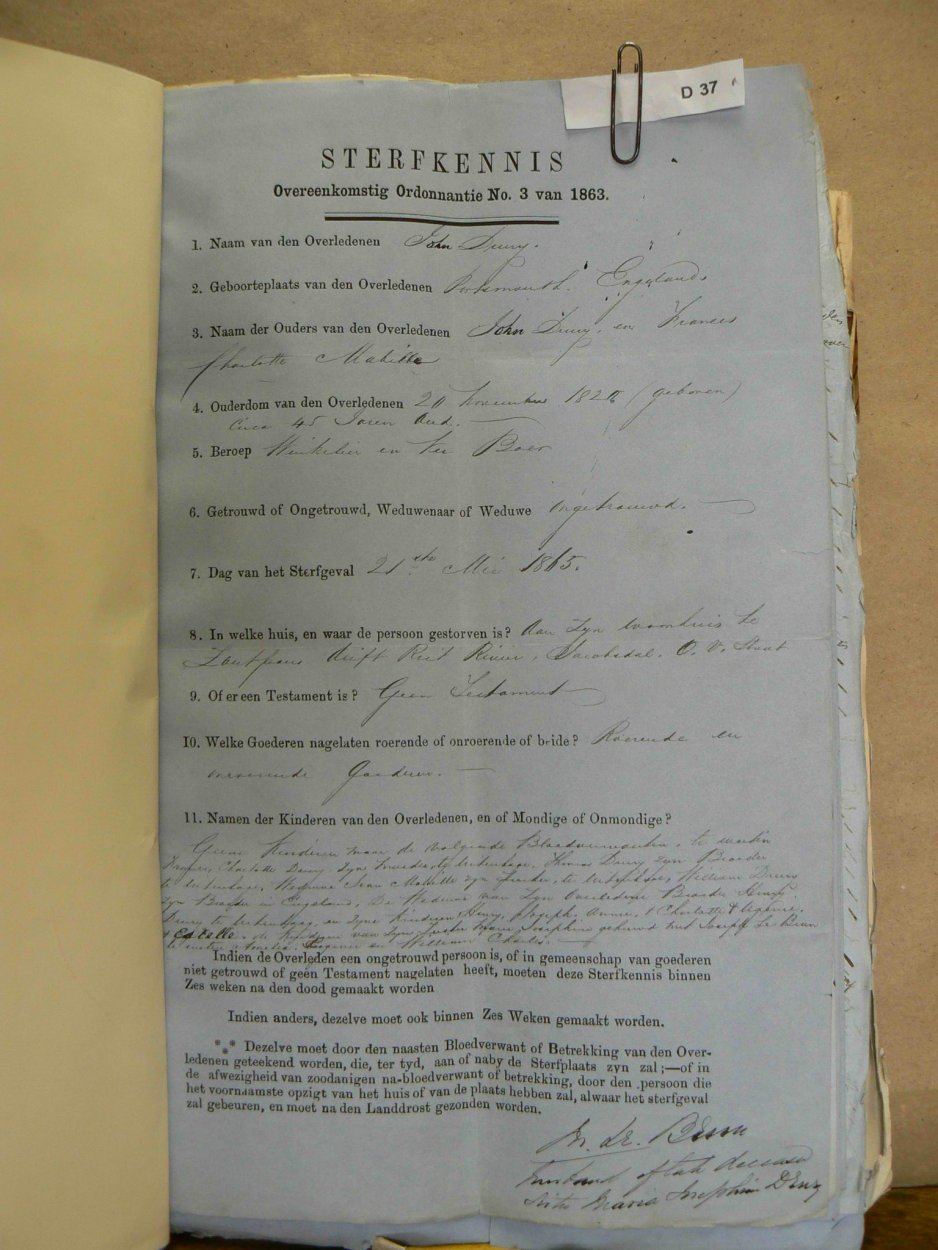 D 37
STERFKENNIS
Overeenkomstig Ordonnantie No. 3 van 1863.
1. Naam van den Overledenen John Drury.
2. Geboorteplaats van den Overledenen Portsmouth. Engeland
3. Naam der Ouders van den Overledenen John Drury. en Frances
Charlotte
4. Ouderdom van den Overledenen 20 November (geboren)
Circa 45 Jaren Oud.
5. Beroep Winkelier en Vee Boer
6. Getrouwd of Ongetrouwd, Weduwenaar of Weduwe Ongetrouwd.
7. Dag van het Sterfgeval 21ste Mei 1865.
8. In welke huis, en waar de persoon gestorven is? Aan Zyn woonhuis te
Zoutpans drift Riet Rivier, Jacobsdal. O. V. Staat
9. Of er een Testament is? Geen Testament
10. Welke Goederen nagelaten roerende of onroerende of beide? Roerende en
onroerende Goederen.
11. Namen der Kinderen van den Overledenen, en of Mondige of Onmondige?
Geene Kinderen maar de volgende Bloedverwanten, te weten
Frances Charlotte Drury Zyne Thomas Drury zyn Broeder
William Drury
zyn Broeder in Engeland, De Weduwe van Zyn Overledene Broeder Henry
Drury en zyne Kinderen Henry, Joseph, Annie, Charlotte Eugenie
Estelle. de Kinderen van Zyn Zuster Maria Josephine gehuwd met Joseph Le Brun
te weten Amelia. Eugenie en William Charles.
Indien de Overleden een ongetrouwd persoon is, of in gemeenschap van goederen
niet getrouwd of geen Testament nagelaten heeft, moeten deze Sterfkennis binnen
Zes weken na den dood gemaakt worden
Indien anders, dezelve moet ook binnen Zes Weken gemaakt worden.
*** Dezelve moet door den naasten Bloedverwant of Betrekking van den Over-
ledenen geteekend worden, die, ter tyd, aan of naby de Sterfplaats zyn zal;—of in
de afwezigheid van zoodanigen na-bloedverwant of betrekking, door den persoon die
het voornaamste opzigt van het huis of van de plaats hebben zal, alwaar het sterfgeval
zal gebeuren, en moet na den Landdrost gezonden worden.
Le Brun
husband of late deceased
Sister Maria Josephine Drury